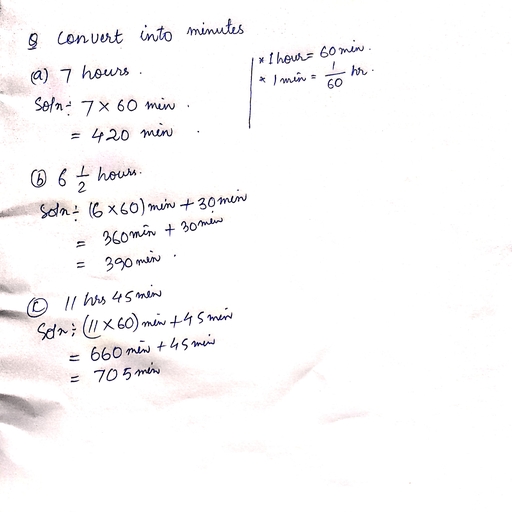 Q Convert into minutes
* 1 hour = 60 min.
* 1 min = 1/60 hr.
(a) 7 hours.
Soln: 7 × 60 min.
= 420 min.
(b) 6 1/2 hours.
Soln: (6 × 60) min + 30 min
= 360 min + 30 min
= 390 min.
(c) 11 hrs 45 min
Soln: (11 × 60) min + 45 min
= 660 min + 45 min
= 705 min